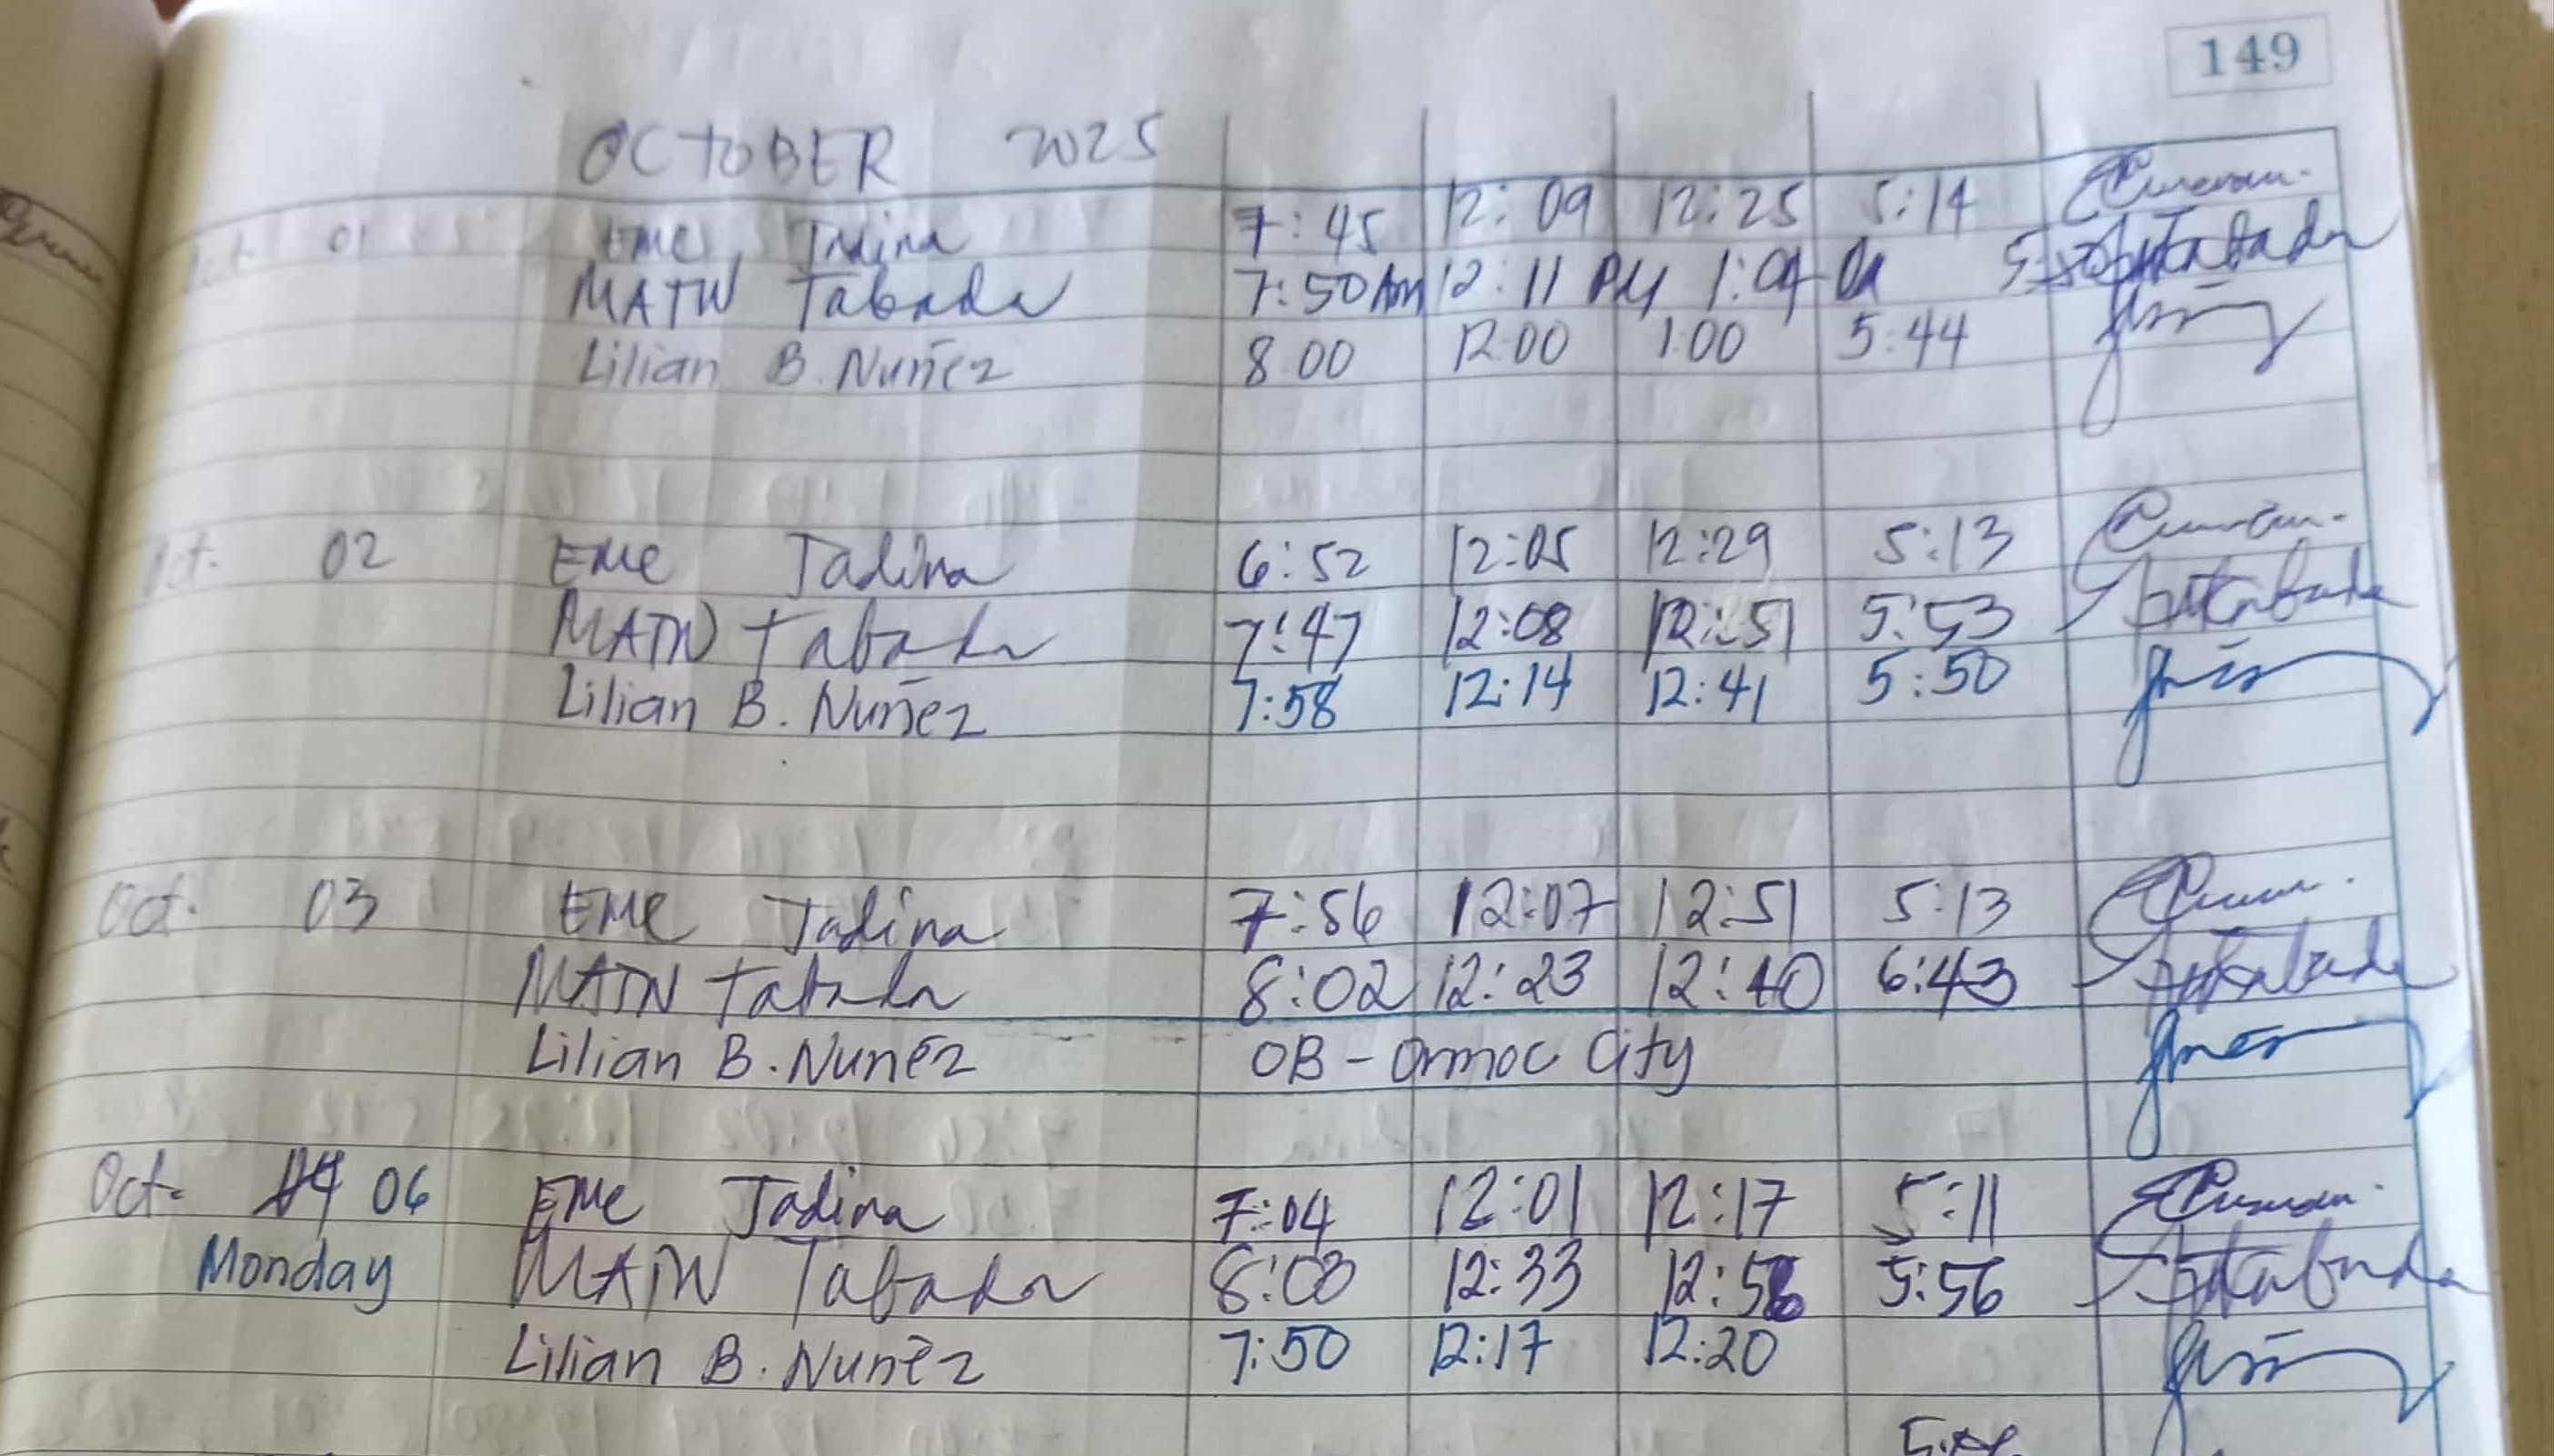 149
OCTOBER 2025
Oct. 01 EME Tadina 7:45 12:09 12:25 5:14
MATW Tabada 7:50 Am 12:11 PM 1:04
Lilian B. Nuñez 8:00 12:00 1:00 5:44
Oct. 02 EME Tadina 6:52 12:05 12:29 5:13
MATW Tabada 7:47 12:08 12:51 5:53
Lilian B. Nuñez 7:58 12:14 12:41 5:50
Oct. 03 EME Tadina 7:56 12:07 12:51 5:13
MATW Tabada 8:02 12:23 12:40 6:43
Lilian B. Nuñez OB - Ormoc City
Oct. 06 EME Tadina 7:04 12:01 12:17 5:11
Monday MATW Tabada 8:03 12:33 5:56
Lilian B. Nuñez 7:50 12:17 12:20